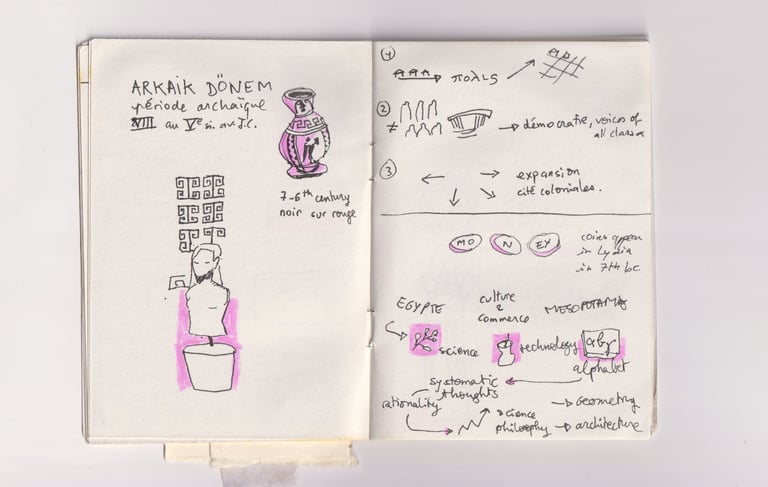 ARKAİK DÖNEM
période archaïque
VIII au Vᵉ si. av J.C.
7-6th century
noir sur rouge
1
πολις
2
≠
démocratie, voices of
all classes
3
expansion
cité coloniales.
MO N EY
coins appear
in Lydia
in 7th bc
EGYPTE
culture
&
commerce
MESOPOTAMIA
science
technology
αβγ
alphabet
systematic
thoughts
rationality
science
philosophy
Geometry
architecture